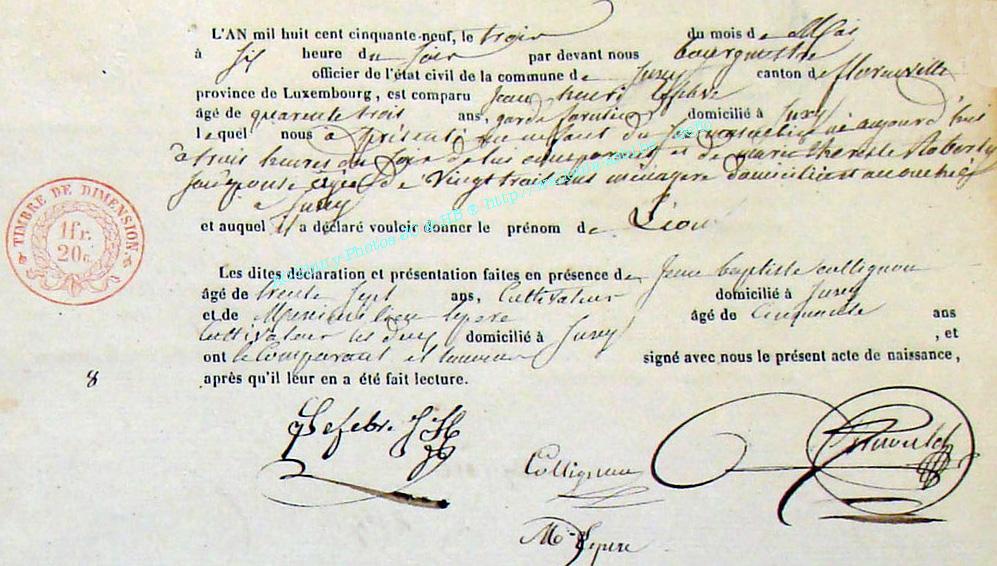 L'AN mil huit cent cinquante-neuf, le trois du mois de Mai
à Six heure du Soir par devant nous bourgmestre
officier de l'état civil de la commune de Jusey canton de florenville
province de Luxembourg, est comparu Jean henri Lefebre
âgé de quarente trois ans, garde forestier domicilié à Juxy
lequel nous à présenté un enfant du né aujourd'hui
à trois heures du Soir de lui comparant et de marie therese Robert
Son épouse agée de Vingt trois ans ménagere
a Jusey
et auquel il a déclaré vouloir donner le prénom de Léon
Les dites déclaration et présentation faites en présence de Jean baptiste collignon
âgé de trente Sept ans, Cultivateur domicilié à Jusey
et de lepere âgé de Cinquante ans
Cultivateur les deux domicilié à Jusey , et
ont le Comparant et temoins signé avec nous le présent acte de naissance,
après qu'il leur en a été fait lecture.
TIMBRE DE DIMENSION
1fr.
20c.
8
Lefebre JH
Collignon
M Lepere